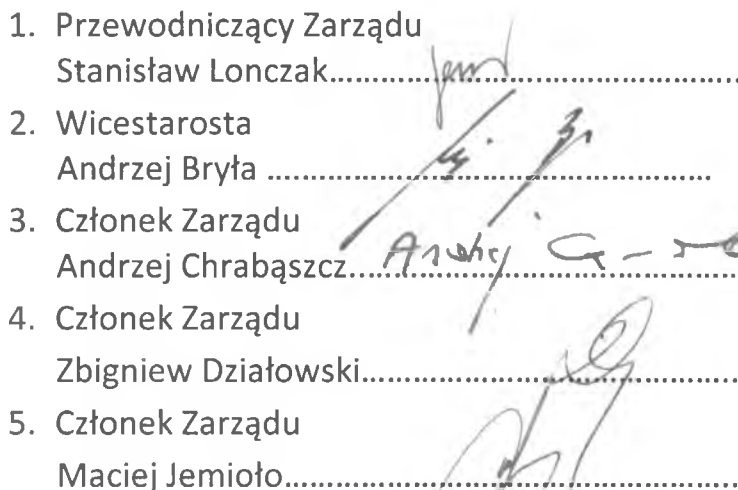 1. Przewodniczący Zarządu
Stanisław Lonczak........................................
2. Wicestarosta
Andrzej Bryła ........................................
3. Członek Zarządu
Andrzej Chrabąszcz.....Andrzej..............................
4. Członek Zarządu
Zbigniew Działowski........................................
5. Członek Zarządu
Maciej Jemioło........................................